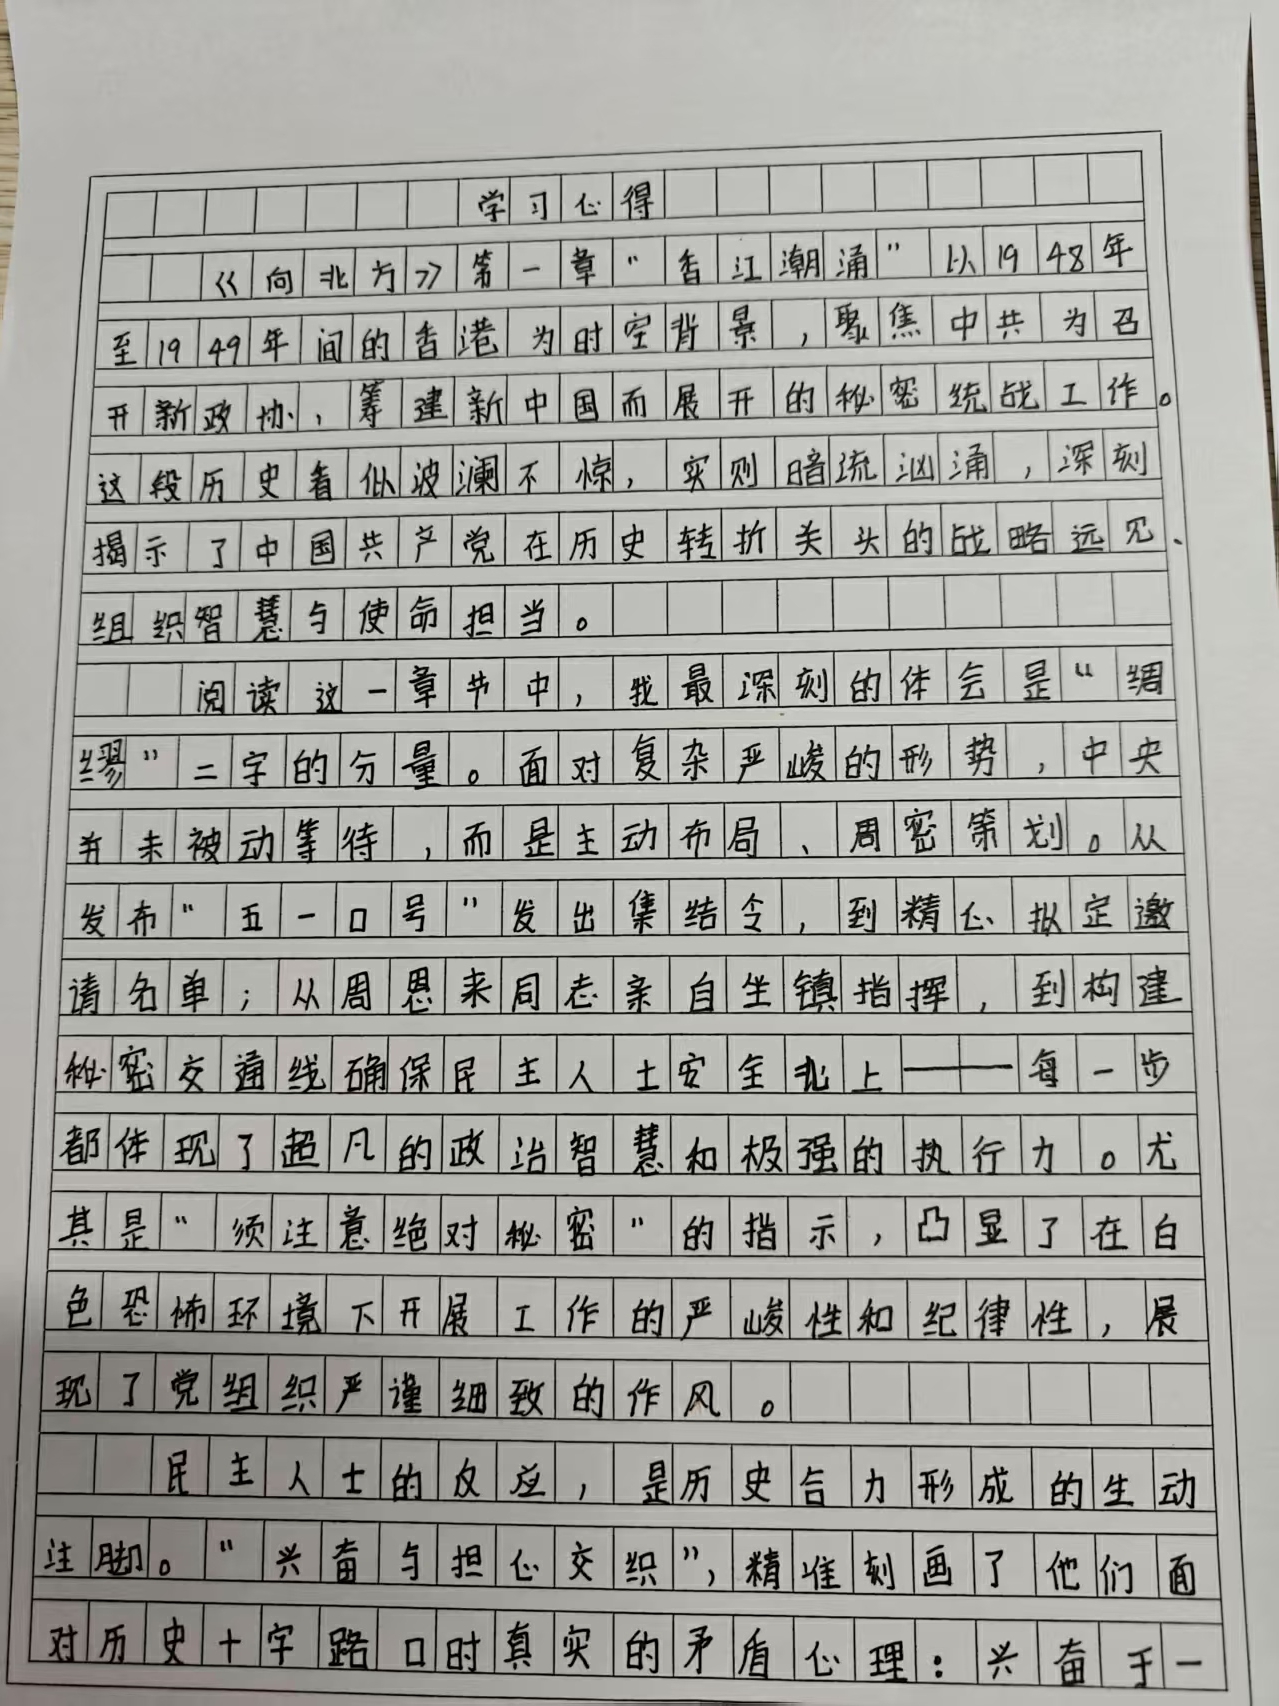 学习心得
《向北方》第一章“香江潮涌”以1948年
至1949年间的香港为时空背景，聚焦中共为召
开新政协，筹建新中国而展开的秘密统战工作。
这段历史看似波澜不惊，实则暗流汹涌，深刻
揭示了中国共产党在历史转折关头的战略远见、
组织智慧与使命担当。
阅读这一章节中，我最深刻的体会是“绸
缪”二字的分量。面对复杂严峻的形势，中央
并未被动等待，而是主动布局、周密策划。从
发布“五一口号”发出集结令，到精心拟定邀
请名单；从周恩来同志亲自坐镇指挥，到构建
秘密交通线确保民主人士安全北上——每一步
都体现了超凡的政治智慧和极强的执行力。尤
其是“须注意绝对秘密”的指示，凸显了在白
色恐怖环境下开展工作的严峻性和纪律性，展
现了党组织严谨细致的作风。
民主人士的反应，是历史合力形成的生动
注脚。“兴奋与担心交织”，精准刻画了他们面
对历史十字路口时真实的矛盾心理：兴奋于一